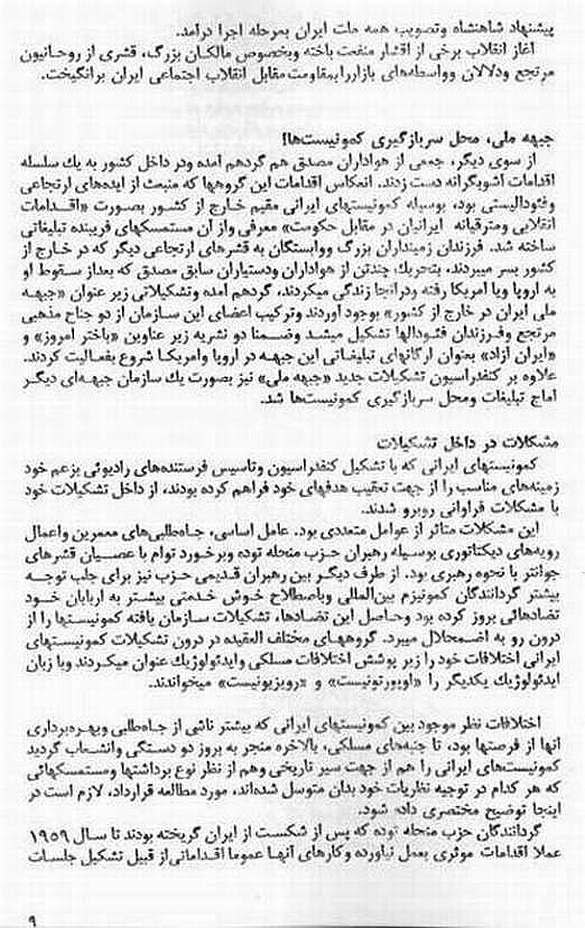 پیشنهاد شاهنشاه وتصویب همه ملت ایران بمرحله اجرا درآمد.
آغاز انقلاب برخی از اقشار منفعت باخته وبخصوص مالکان بزرگ، قشری از روحانیون
مرتجع ودلالان وواسطه‌های بازاررابمقاومت مقابل انقلاب اجتماعی ایران برانگیخت.
جبهه ملی، محل سربازگیری کمونیست‌ها!
از سوی دیگر، جمعی از هواداران مصدق هم گردهم آمده ودر داخل کشور به یك سلسله
اقدامات آشوبگرانه دست زدند. انعکاس اقدامات این گروهها که منبعث از ایده‌های ارتجاعی
وفئودالیستی بود، بوسیله کمونیستهای ایرانی مقیم خارج از کشور بصورت «اقدامات
انقلابی ومترقیانه ایرانیان در مقابل حکومت» معرفی واز آن مستمسکهای فریبنده تبلیغاتی
ساخته شد. فرزندان زمینداران بزرگ ووابستگان به قشرهای ارتجاعی دیگر که در خارج از
کشور بسر میبردند، بتحریك چندتن از هواداران ودستیاران سابق مصدق که بعداز سقوط او
به اروپا ویا امریکا رفته ودرآنجا زندگی میکردند، گردهم آمده وتشکیلاتی زیر عنوان «جبهه
ملی ایران در خارج از کشور» بوجود آوردند وترکیب اعضای این سازمان از دو جناح مذهبی
مرتجع وفرزندان فئودالها تشکیل میشد وضمنا دو نشریه زیر عناوین «باختر امروز» و
«ایران آزاد» بعنوان ارگانهای تبلیغاتی این جبهه در اروپا وامریکا شروع بفعالیت کردند.
علاوه بر کنفدراسیون تشکیلات جدید «جبهه ملی» نیز بصورت یك سازمان جبهه‌ای دیگر
آماج تبلیغات ومحل سربازگیری کمونیست‌ها شد.
مشکلات در داخل تشکیلات
کمونیستهای ایرانی که با تشکیل کنفدراسیون وتاسیس فرستنده‌های رادیوئی بزعم خود
زمینه‌های مناسب را از جهت تعقیب هدفهای خود فراهم کرده بودند، از داخل تشکیلات خود
با مشکلات فراوانی روبرو شدند.
این مشکلات متاثر از عوامل متعددی بود. عامل اساسی، جاه‌طلبی‌های معمرین واعمال
رویه‌های دیکتاتوری بوسیله رهبران حزب منحله توده وبرخورد توام با عصیان قشرهای
جوانتر با نحوه رهبری بود. از طرف دیگر بین رهبران قدیمی حزب نیز برای جلب توجه
بیشتر گردانندگان کمونیزم بین‌المللی وباصطلاح خوش خدمتی بیشتر به اربابان خود
تضادهائی بروز کرده بود وحاصل این تضادها، تشکیلات سازمان یافته کمونیستها را از
درون رو به اضمحلال میبرد. گروههای مختلف العقیده در درون تشکیلات کمونیستهای
ایرانی اختلافات خود را زیر پوشش اختلافات مسلکی وایدئولوژیك عنوان میکردند وبا زبان
ایدئولوژیك یکدیگر را «اوپورتونیست» و «رویزیونیست» میخواندند.
اختلافات نظر موجود بین کمونیستهای ایرانی که بیشتر ناشی از جاه‌طلبی وبهره‌برداری
آنها از فرصتها بود، تا جنبه‌های مسلکی، بالاخره منجر به بروز دو دستگی وانشعاب گردید
کمونیست‌های ایرانی را هم از جهت سیر تاریخی وهم از نظر نوع برداشتها ومستمسکهائی
که هر کدام در توجیه نظریات خود بدان متوسل شده‌اند، مورد مطالعه قرارداد، لازم است در
اینجا توضیح مختصری داده شود.
گردانندگان حزب منحله توده که پس از شکست از ایران گریخته بودند تا سال ۱۹۵۹
عملا اقدامات موثری بعمل نیاورده وکارهای آنها عموما اقداماتی از قبیل تشکیل جلسات
۹